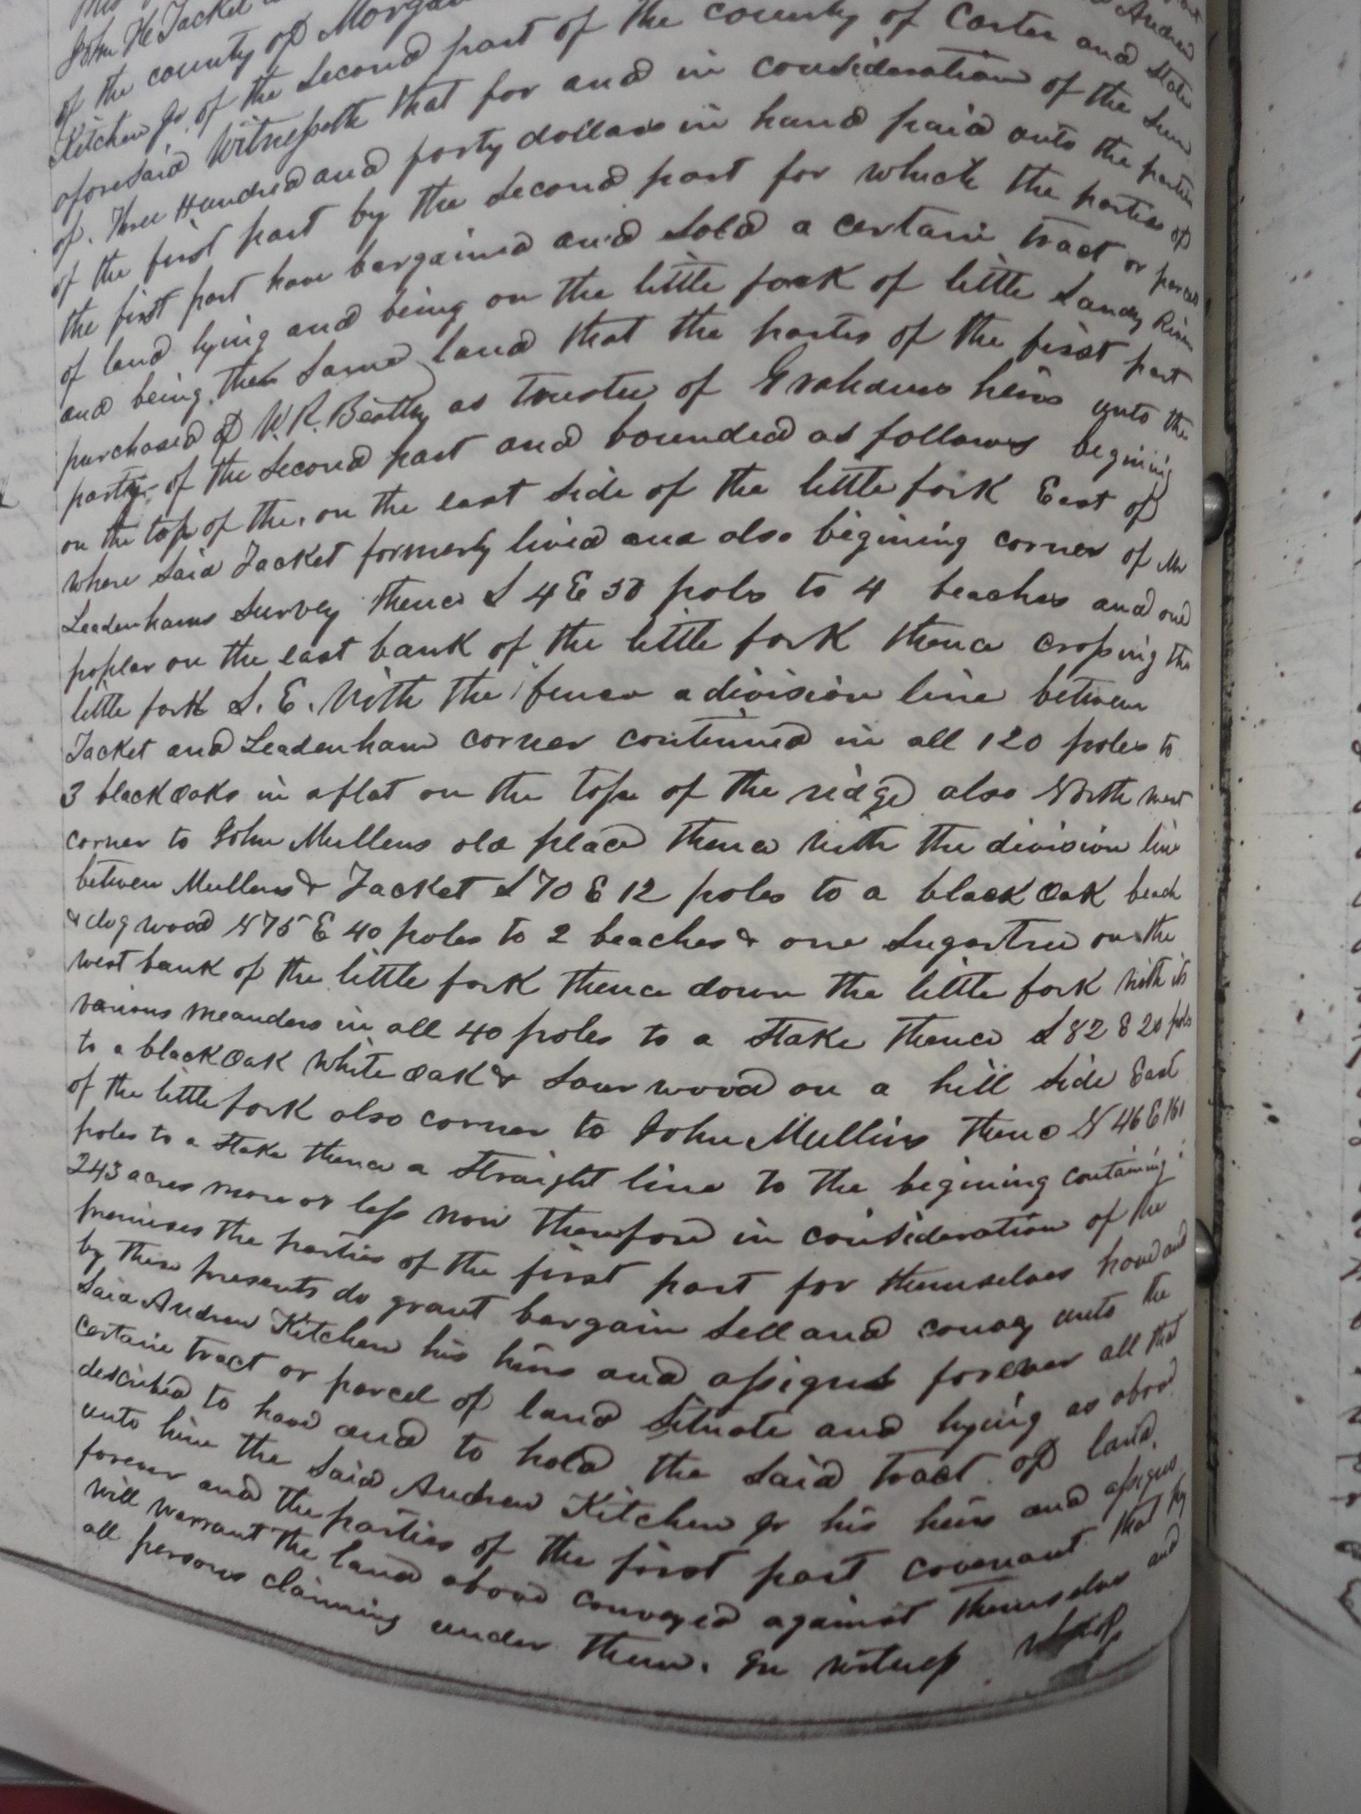 John H Jacket
of the county of Morgan Andrew
Kitchen Jr. of the second part of the county of Carter and State
aforesaid Witnesseth that for and in consideration of the Sum
of. Three Hundred and forty dollars in hand paid unto the parties
of the first part by the second part for which the parties of
the first part have bargained and sold a certain tract or parcel
of land lying and being on the little fork of little Sandy River
and being the same land that the parties of the first part
purchased of W. R. Beatty as trustee of Grahams heirs unto the
party of the second part and bounded as follows begining
on the top of the. on the east side of the little fork East of
where said Jacket formerly lived and also begining corner of Mr
Leadenhams Survey thence S 4 E 50 poles to 4 beaches and one
poplar on the east bank of the little fork thence crossing the
little fork S. E. With the fence a division line between
Jacket and Leadenham corner continued in all 120 poles to
3 black oaks in a flat on the top of the ridge also North west
corner to John Mullens old place thence with the division line
between Mullens & Jacket S 70 E 12 poles to a black Oak beach
& dog wood N 75 E 40 poles to 2 beaches & one Sugartree on the
west bank of the little fork thence down the little fork with its
various meanders in all 40 poles to a Stake thence S 82 E 20 pols
to a black Oak White Oak & Sour wood on a hill side East
of the little fork also corner to John Mullins thence N 46 E 161
poles to a stake thence a straight line to the begining containing
243 acres more or less now therefore in consideration of the
premises the parties of the first part for themselves have and
by these presents do grant bargain sell and convey unto the
said Andrew Kitchen his heirs and assigns forever all that
certain tract or parcel of land Situate and lying as above
described to have and to hold the said tract of land.
unto him the said Andrew Kitchen Jr his heirs and assigns
forever and the parties of the first part covenant that they
will warrant the land above conveyed against themselves and
all persons claiming under them. In witness